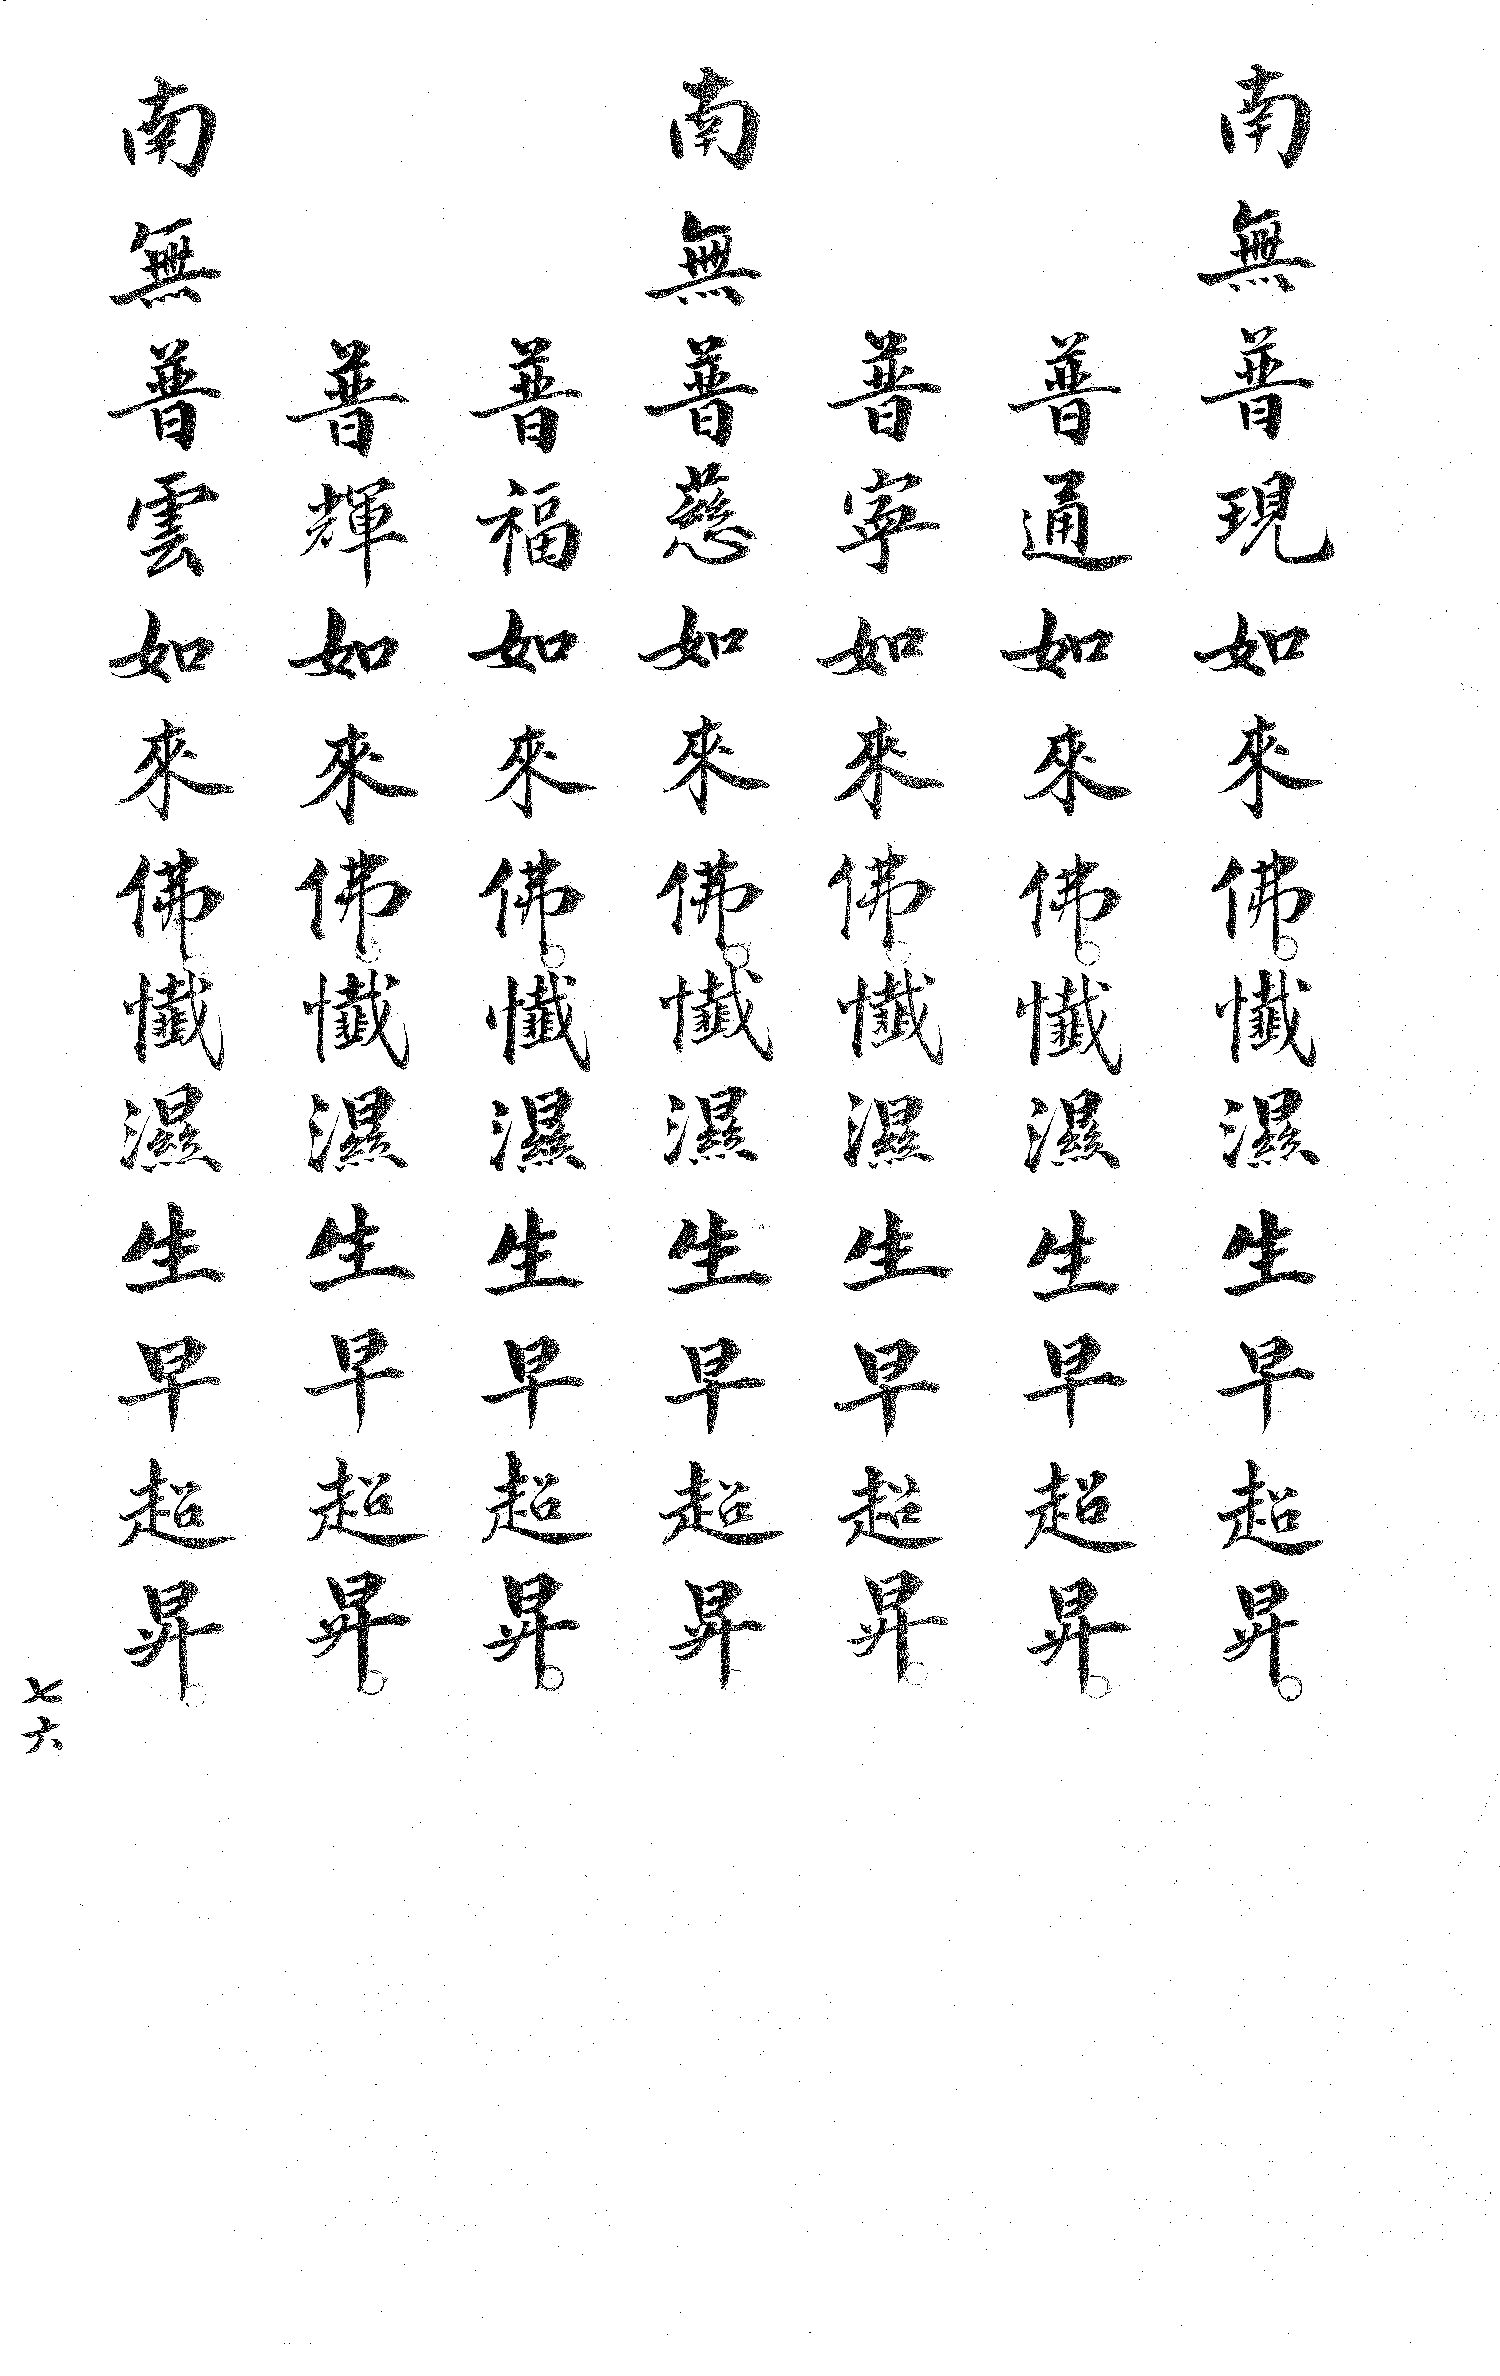 南無普現如來佛。懺濕生早超昇。
普通如來佛。懺濕生早超昇。
普寧如來佛。懺濕生早超昇。
南無普慈如來佛。懺濕生早超昇
普福如來佛。懺濕生早超昇。
普輝如來佛。懺濕生早超昇。
南無普雲如來佛懺濕生早超昇。
七六